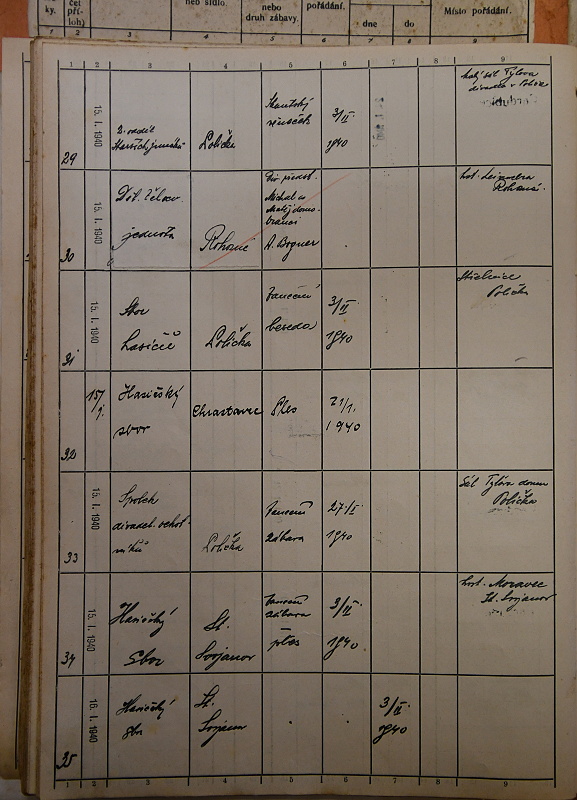 ky.
čet
pří-
loh)
neb sídlo.
nebo
druh zábavy.
pořádání.
dne
do
Místo pořádání.
1 2 3 4 5 6 7 8 9
1 2 3 4 5 6 7 8 9
29
15. I. 1940
2. oddíl
Polička
3/II.
1940
sál Tylova
divadla v Poličce
30
15. I. 1940
Děl. tělov.
jednota
Rohozná
Michal a
Matěj domo-
branci
A. Bogner
host.
Rohozná
31
15. I. 1940
Sbor
hasičů
Polička
Taneční
beseda
3/II
1940
Střelnice
Polička
32
15/
1.
Hasičský
sbor
Chrastavec
Ples
21/1.
1940
33
15. I. 1940
Spolek
divadel. ochot-
níků
Polička
taneční
zábava
27./I
1940
Sál Tylova domu
Polička
34
15. I. 1940
Hasičský
Sbor
St.
Svojanov
taneční
zábava
ples
3/II.
1940
host. Moravec
St. Svojanov
35
16. I. 1940
Hasičský
sbor
St.
Svojanov
3/II.
1940
1 2 3 4 5 6 7 8 9